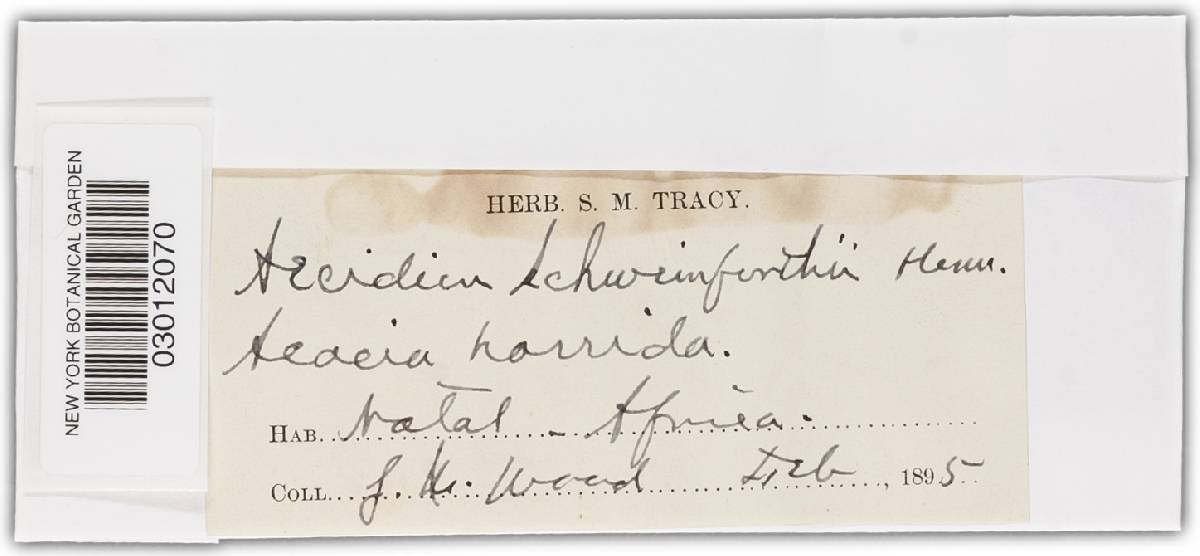 NEW YORK BOTANICAL GARDEN
03012070
HERB. S. M. TRACY.
Aecidium Schweinfurthii Henn.
Acacia horrida.
HAB. Natal - Africa.
COLL. J. M. Wood Feb, 1895